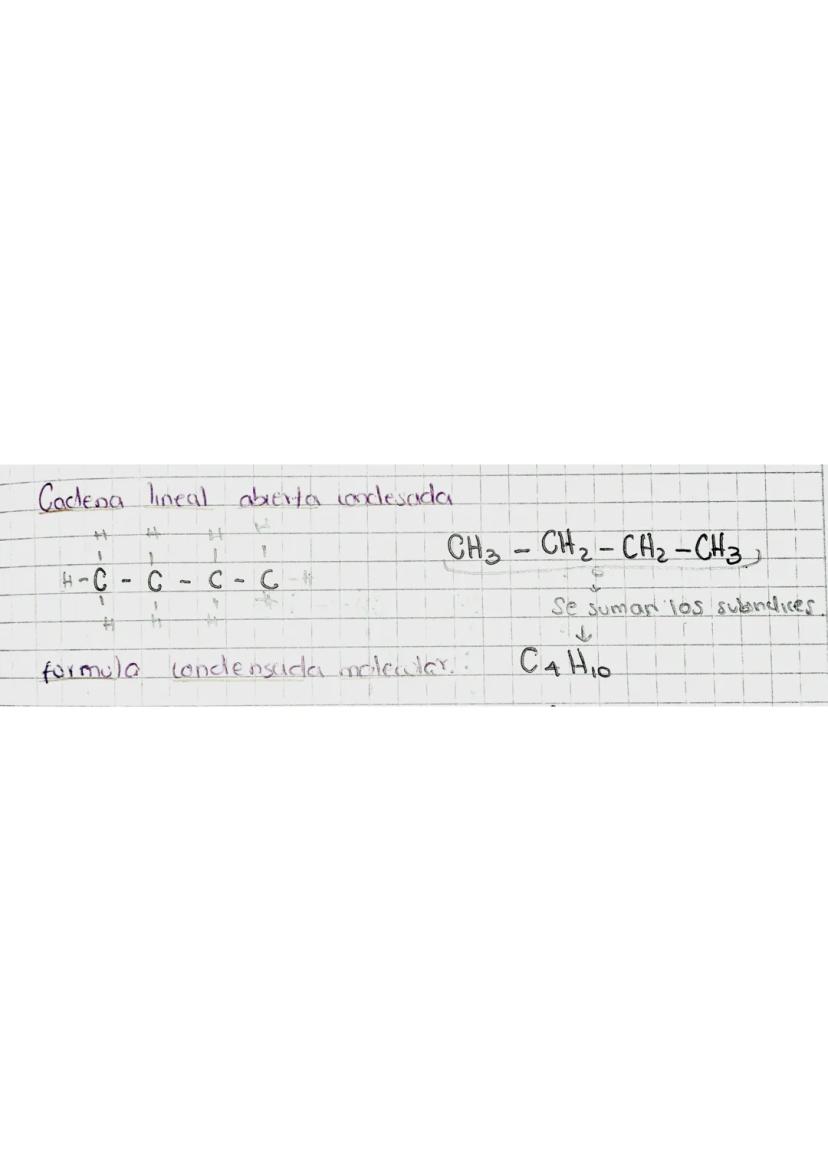 Cadena lineal abierta condesada
H H H H
CH3 - CH2 - CH2 - CH3
H - C - C - C - C - H
Se suman los subindices
H H H H
formula condensada molecular: C4 H10